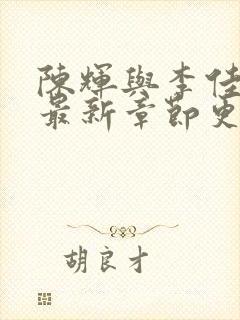 陳輝與李佳
最新章節更
胡良才